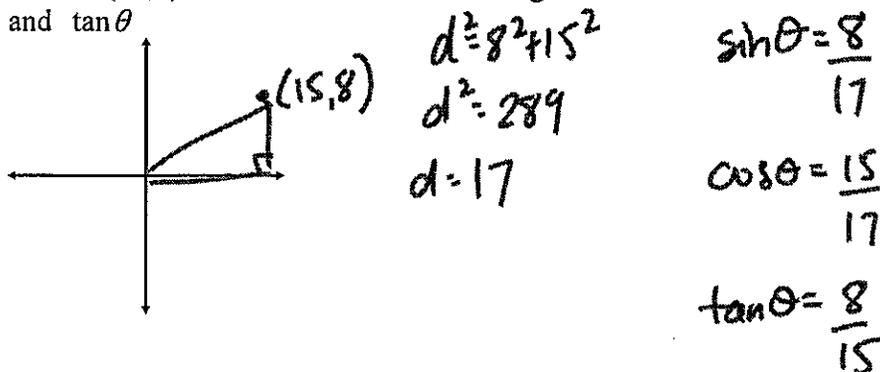 and tanθ
(15,8)
d²=8²+15²
d²=289
d=17
sinθ=8/17
cosθ=15/17
tanθ=8/15